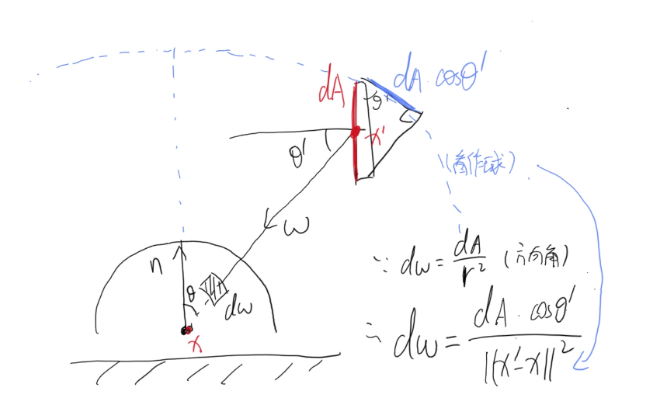 dA
dA · cosθ'
θ'
x'
θ'
(看作球)
ω
n
θ
dω
x
∵ dω = dA / r² (方向角)
∴ dω = dA · cosθ' / ||x'-x||²